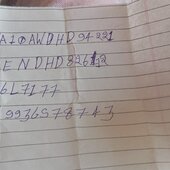 A10AWDHD94221
ENDHD82612
6L7177
9936578743